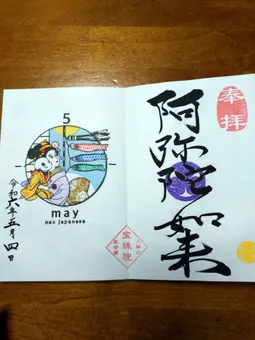 奉拝
阿弥陀如来
5
may
neo japanese
令和六年五月四日
宝珠院